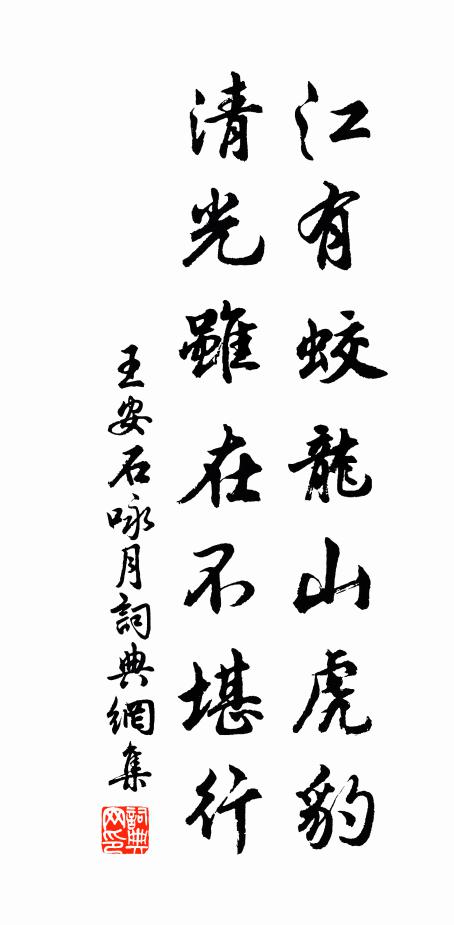 江有蛟龍山虎豹
清光雖在不堪行
王安石咏月詞典網集
詞典網印